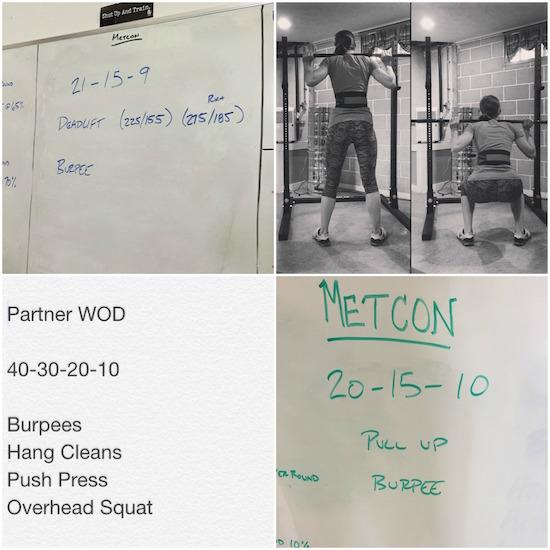 Shut Up And Train.
METCON
21-15-9
RX+
DEADLIFT (225/155) (275/185)
BURPEE
@65%
70%
Partner WOD
40-30-20-10
Burpees
Hang Cleans
Push Press
Overhead Squat
METCON
20-15-10
PULL UP
BURPEE
ROUND
10%